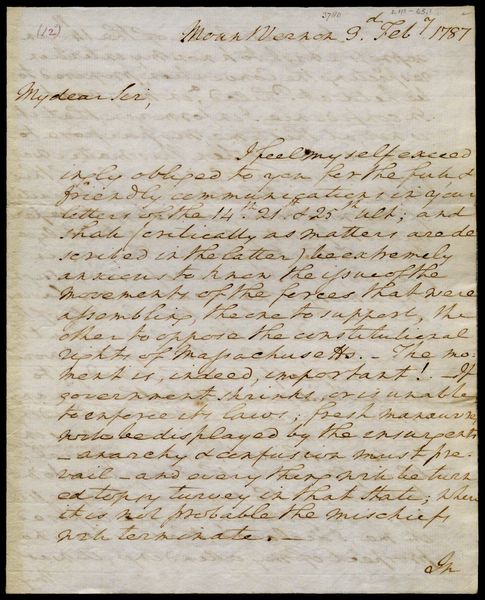 (12)
Mount Vernon 3d Feby 1787
My dear Sir,
I feel myself exceed
ingly obliged to you for the full &
friendly communications in your
letters of the 14th. 21st. & 25th ult; and
shall (critically as matters are de
scribed in the latter) be extremely
anxious to know the issue of the
movements of the forces that were
assembling, the one to support, the
other to oppose the constitutional
rights of Massachusetts. – The mo-
ment is, indeed, important! – If
government shrinks, or is unable
to enforce its laws; fresh manœuvres
will be displayed by the insurgents
– anarchy & confusion must pre-
vail – and every thing will be turn
ed topsy turvey in that State; where
it is not probable the mischiefs
will terminate. –
In